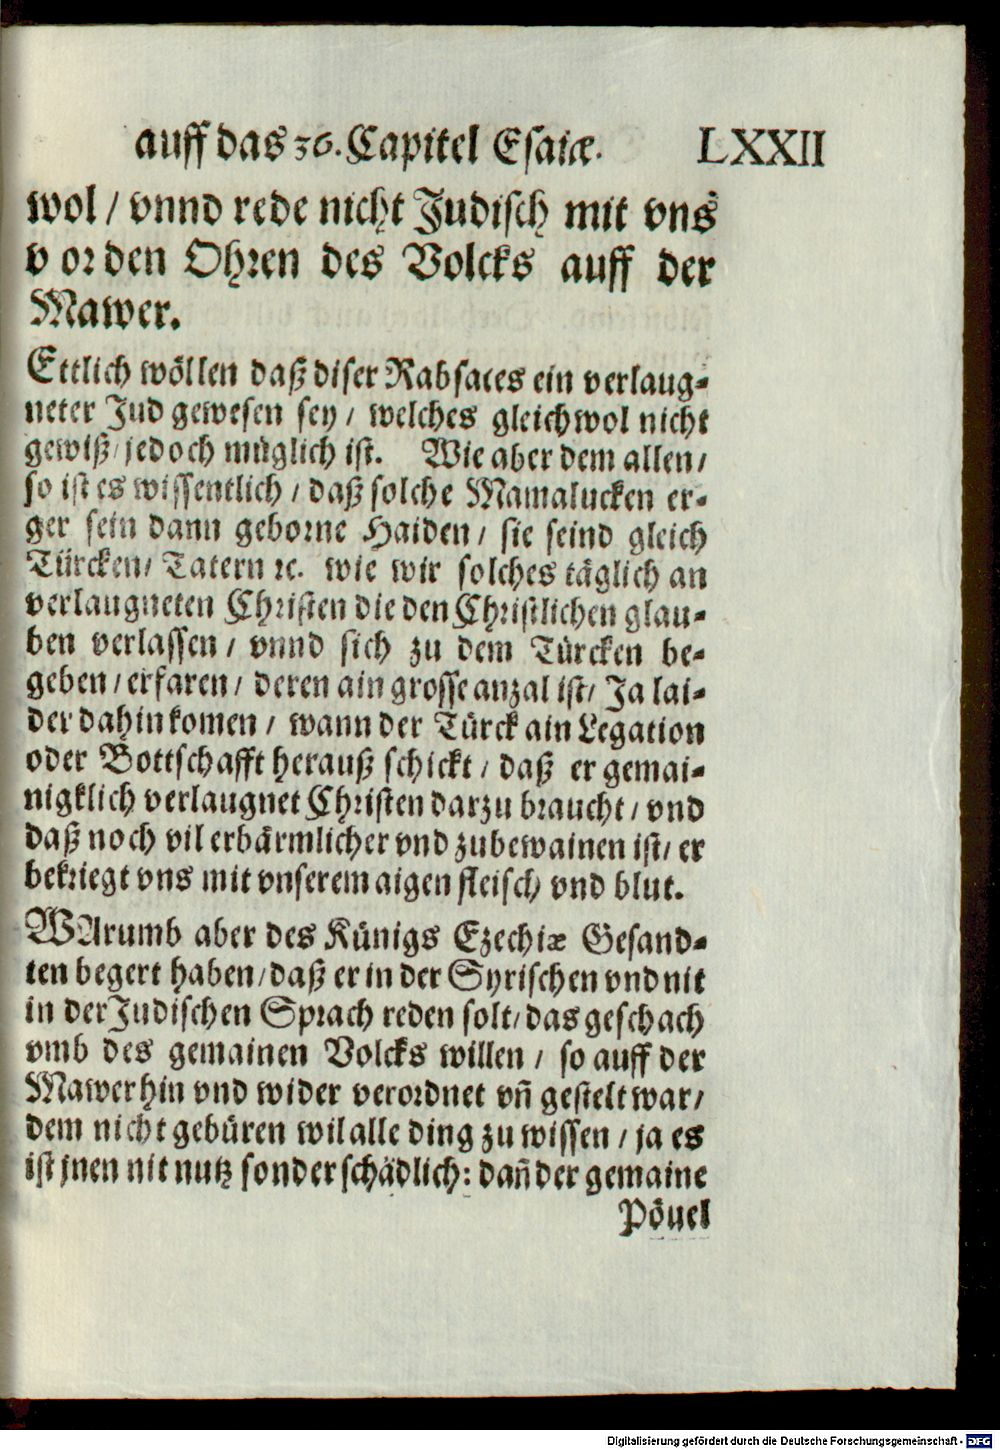 auff das 36. Capitel Esaiæ. LXXII
wol / vnnd rede nicht Judisch mit vns
vor den Ohren des Volcks auff der
Mawer.
Ettlich wöllen daß diser Rabsaces ein verlaug-
neter Jud gewesen sey / welches gleichwol nicht
gewiß / jedoch müglich ist. Wie aber dem allen /
so ist es wissentlich / daß solche Mamalucken er-
ger sein dann geborne Haiden / sie seind gleich
Türcken / Tatern ꝛc. wie wir solches täglich an
verlaugneten Christen die den Christlichen glau-
ben verlassen / vnnd sich zu dem Türcken be-
geben / erfaren / deren ain grosse anzal ist / Ja lai-
der dahin komen / wann der Türck ain Legation
oder Bottschafft herauß schickt / daß er gemai-
nigklich verlaugnet Christen darzu braucht / vnd
daß noch vil erbärmlicher vnd zubewainen ist / er
bekriegt vns mit vnserem aigen fleisch vnd blut.
WArumb aber des Künigs Ezechiæ Gesand-
ten begert haben / daß er in der Syrischen vnd nit
in der Judischen Sprach reden solt / das geschach
vmb des gemainen Volcks willen / so auff der
Mawer hin vnd wider verordnet vñ gestelt war /
dem nicht gebüren wil alle ding zu wissen / ja es
ist jnen nit nutz sonder schädlich: dañ der gemaine
Pöuel
Digitalisierung gefördert durch die Deutsche Forschungsgemeinschaft - DFG